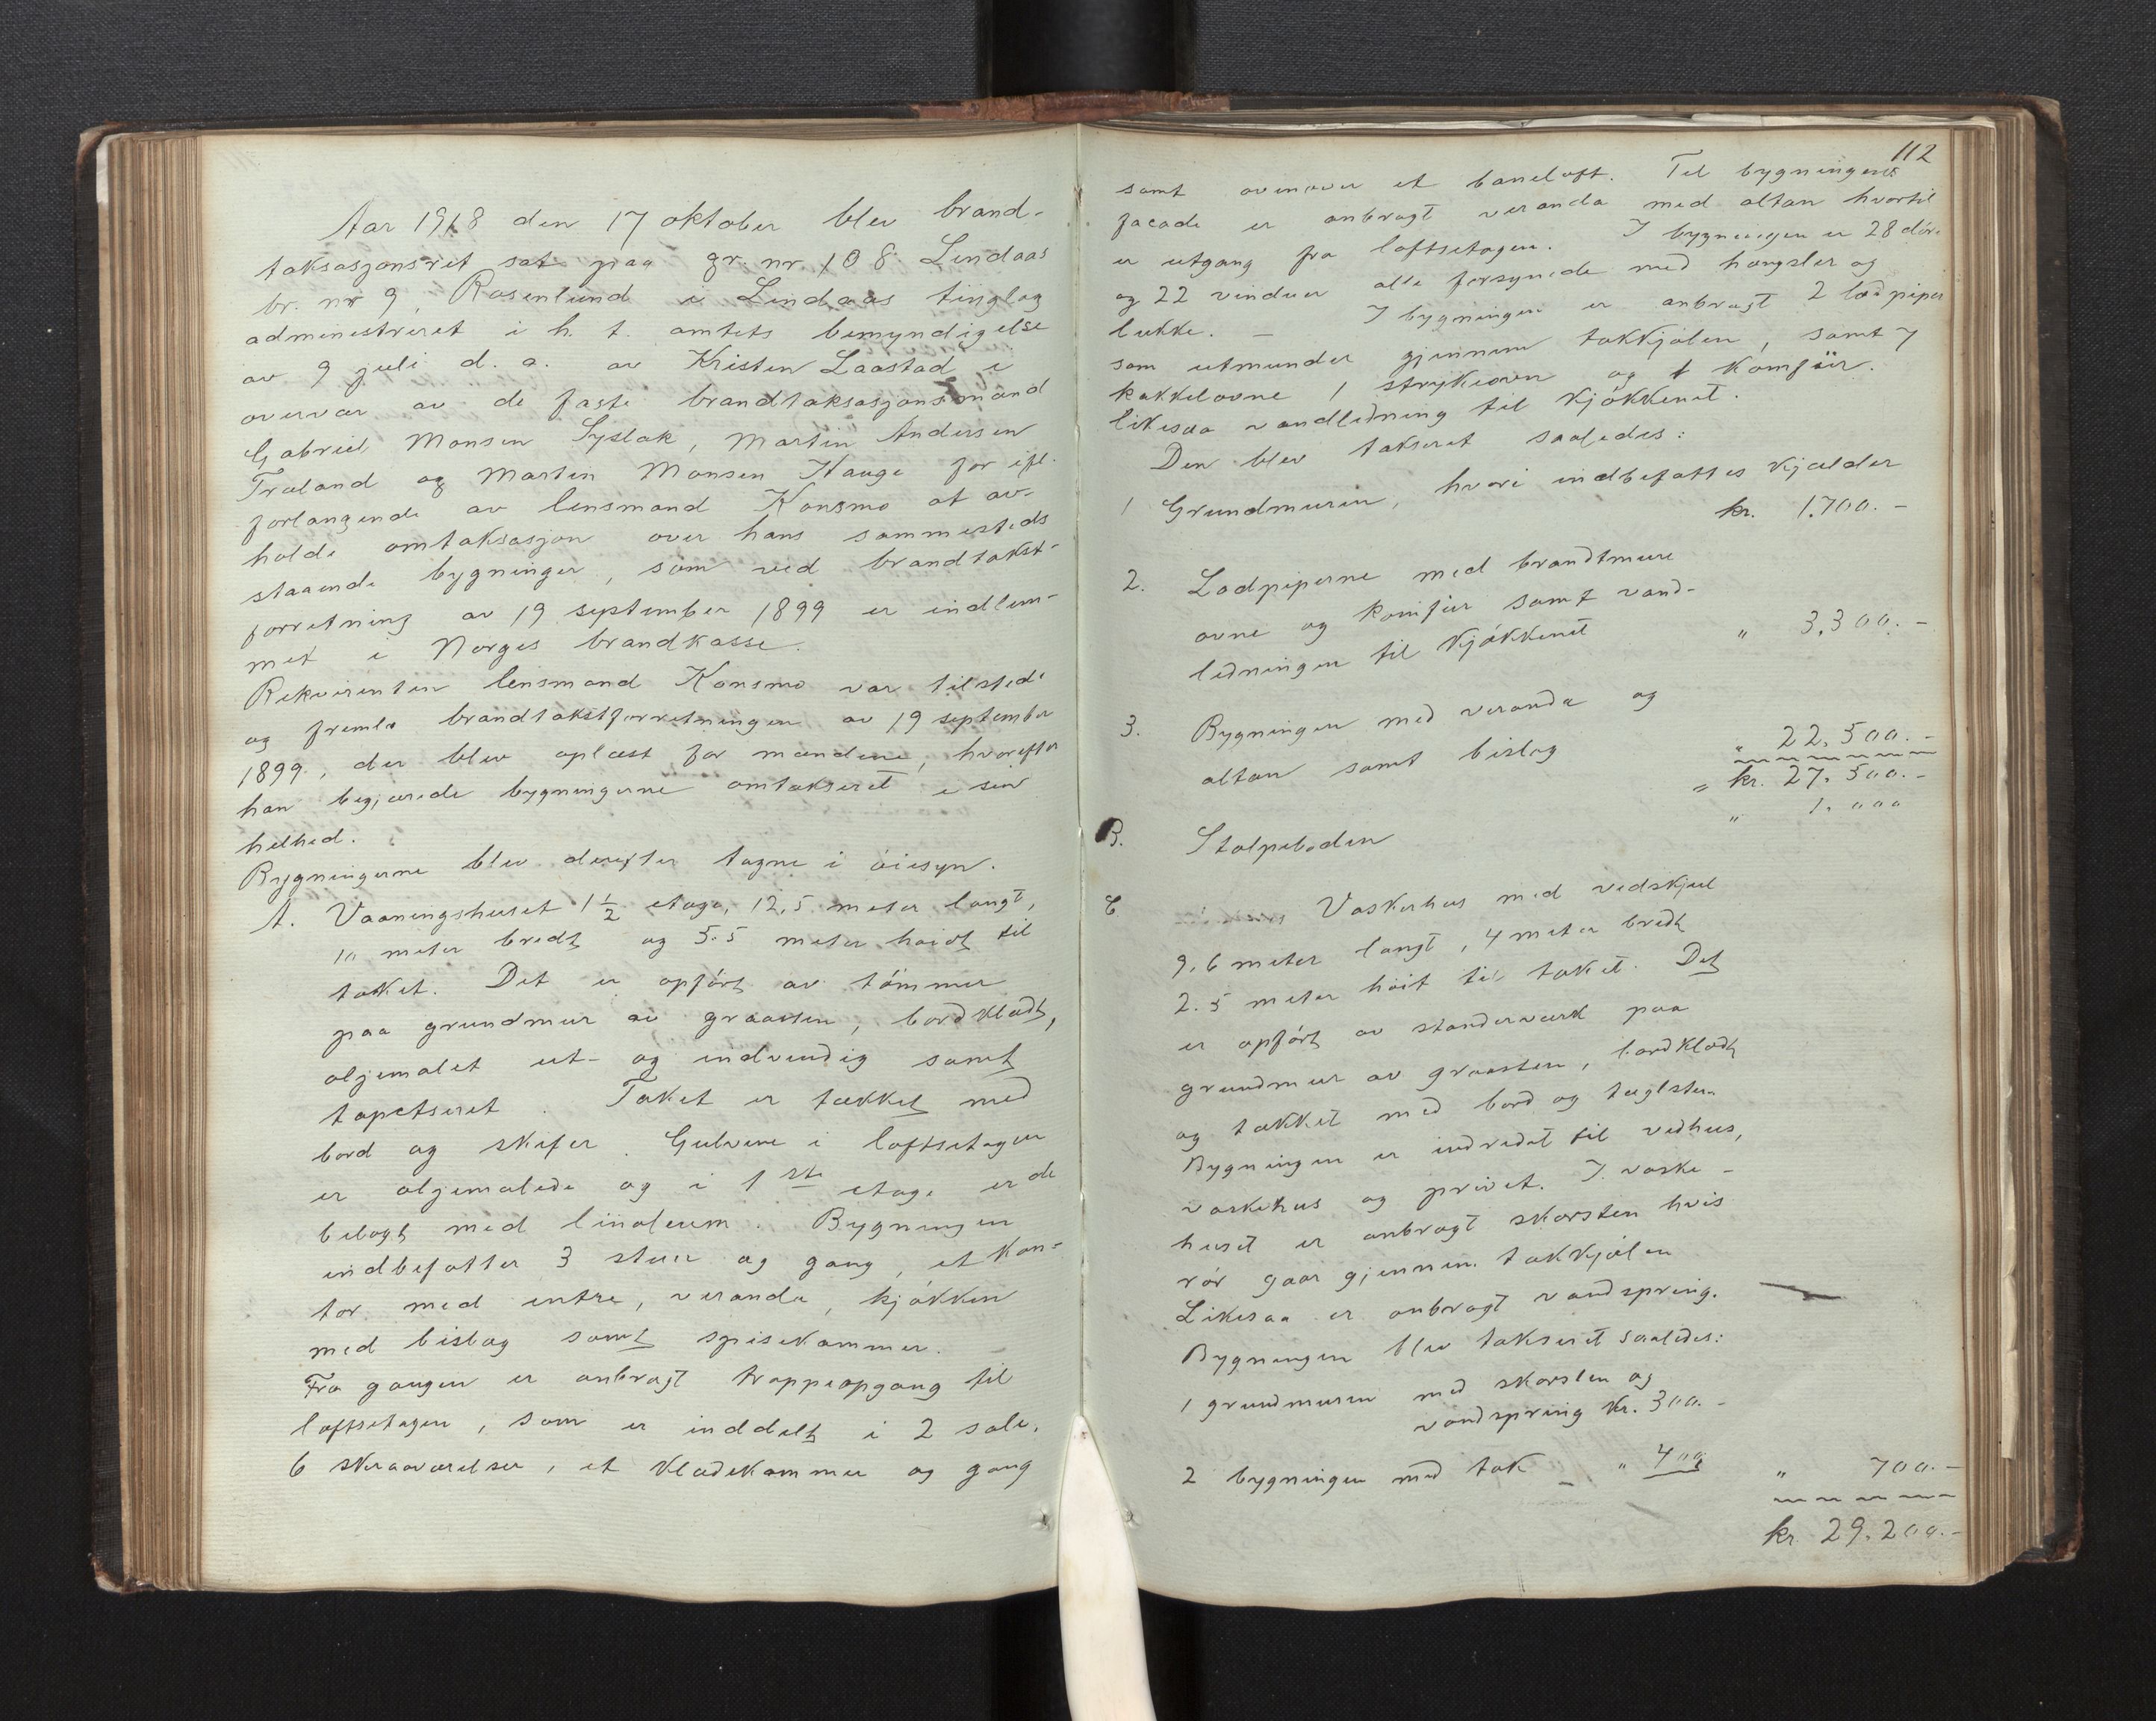 Aar 1918 den 17 oktober blev brand-
taksasjonsret sat paa gr. nr 108 Lindaas
br. nr 9, Rosenlund i Lindaas tinglag
administreret i h. t. amtets bemyndigelse
av 9 juli d. a. av Kristen Laastad i
overvær av de faste brandtaksasjonsmænd
Gabriel Monsen Syslak, Martin Andersen
Træland og Marten Monsen Hauge for efl.
forlangende av lensmand Konsmo at av-
holde omtaksasjon over hans sammesteds
staaende bygninger, som ved brandtakst-
forretning av 19 september 1899 er indlem-
met i Norges brandkasse.
Rekvirenten lensmand Konsmo var tilstede
og fremla brandtakstforretningen av 19 september
1899, der blev oplæst for mændene, hvorefter
han begjærede bygningerne omtakseret i sin
helhed.
Bygningerne blev derefter tagne i öiesyn.
A. Vaaningshuset 1 1/2 etage, 12,5 meter langt,
10 meter bredt og 5.5 meter höidt til
taket. Det er opfört av tömmer
paa grundmur av graasten, bordklædt,
oljemalet ut- og indvendig samt
tapetseret. Taket er tækket med
bord og skifer. Gulvene i loftsetagen
er oljemalede og i 1ste etage er de
belagt med linoleum. Bygningen
indbefatter 3 stuer og gang, et kon-
tor med entre, veranda, kjökken
med bislag samt spisekammer.
Fra gangen er anbragt trappeopgang til
loftsetagen, som er inddelt i 2 sale,
6 skraaværelser, et klædekammer og gang
112
samt ovenover et baneloft. Til bygningens
facade er anbragt veranda med altan hvortil
er utgang fra loftsetagen. I bygningen er 28 döre
og 22 vinduer alle forsynede med hængsler og
lukke. - I bygningen er anbragt 2 lodpiper
som utmunder gjennem takkjölen, samt 7
kakkelovne 1 strykeovn og 1 komfür.
likesaa vandledning til kjökkenet.
Den blev takseret saaledes:
1 Grundmuren, hvori indbefattes kjælder
kr. 1.700. -
2. Lodpiperne med brandtmure
ovne og komfür samt vand-
ledningen til kjökkenet " 3.300. -
3. Bygningen med veranda og
altan samt bislag " 22.500. -
= kr. 27.500. -
B. Stolpeboden " 1.000
C Vaskerhus med vedskjul
9,6 meter langt, 4 meter bredt
2.5 meter höit til taket. Det
er opfört av stenderværk paa
grundmur av graasten, bordklædt
og tækket med bord og teglsten.
Bygningen er indredet til vedhus,
vaskehus og privet. I vaske-
huset er anbragt skorsten hvis
rör gaar gjennem takkjölen
Likesaa er anbragt vandspring.
Bygningen blev takseret saaledes:
1 grundmuren med skorsten og
vandspring kr. 300. -
2 bygningen med tak - " 400 " 700. -
kr. 29.200. -